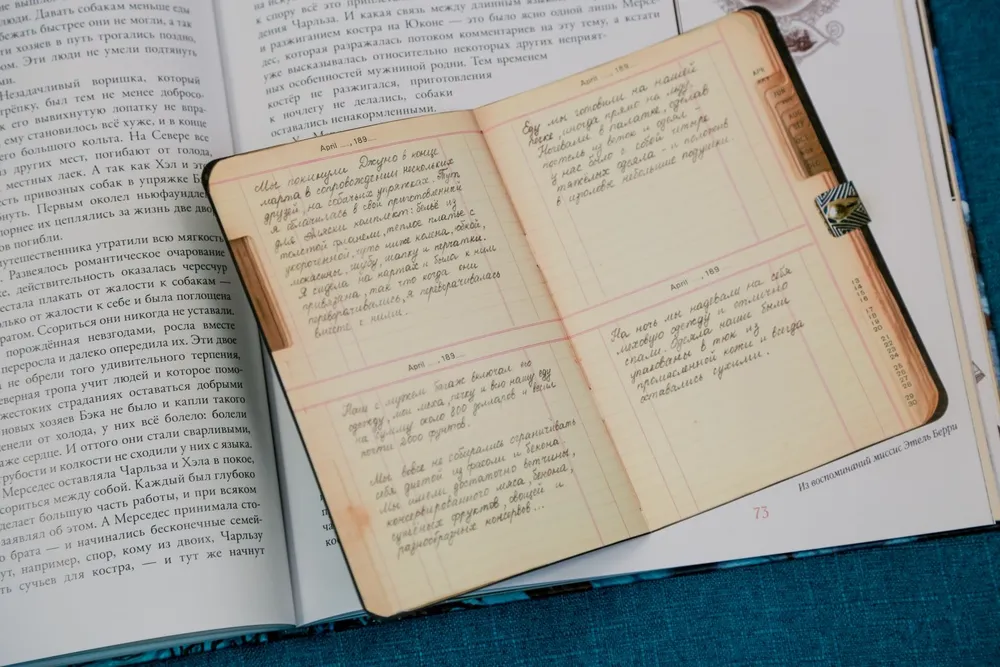 люди. Давать собакам меньше еды
бежать быстрее они не могли, а так
хозяев в путь трогались поздно,
ром. Эти люди не умели подтянуть
ми.
Незадачливый воришка, который
трёпку, был тем не менее добросо-
к его вывихнутую лопатку не впра-
ему становилось всё хуже, и в конце
его большого кольта. На Севере все
из других мест, погибают от голода,
местных лаек. А так как Хэл и
сть привозных собак в упряжке
нуть. Первым околел ньюфаундлен
порнее их цеплялись за жизнь две дво
ов погибли.
путешественника утратили всю мягкость
Развеялось романтическое очарование
действительность оказалась чересчур
стала плакать от жалости к собакам —
олько от жалости к себе и была поглощена
ратом. Ссориться они никогда не уставали.
порождённая невзгодами, росла вместе
переросла и далеко опередила их. Эти двое
не обрели того удивительного терпения,
еверная тропа учит людей и которое помо-
жестоких страданиях оставаться добрыми
новых хозяев Бэка не было и капли такого
ченели от холода, у них всё болело: болели
аже сердце. И оттого они стали сварливыми,
грубости и колкости не сходили у них с языка.
Мерседес оставляла Чарльза и Хэла в покое,
сориться между собой. Каждый был глубоко
делает большую часть работы, и при всяком
заявлял об этом. А Мерседес принимала сто-
о брата — и начинались бесконечные семей-
ут, например, спор, кому из двоих, Чарльзу
ть сучьев для костра, — и тут же начнут
к спору всё это
дения Чарльза. И какая связь между длинным
и разжиганием костра на Юконе — это было ясно одной лишь Мерсе-
дес, которая разражалась потоком комментариев на эту тему, а кстати
уже высказывалась относительно некоторых других неприят-
ных особенностей мужниной родни. Тем временем
костёр не разжигался, приготовления
к ночлегу не делались, собаки
оставались ненакормленными.
April ..., 189...
Мы покинули Джуно в конце
марта в сопровождении нескольких
друзей, на собачьих упряжках. Тут
я облачилась в свой приготовленный
для Аляски комплект: бельё из
толстой фланели, тёплое платье с
укороченной, чуть ниже колена, юбкой,
мокасины, шубу, шапку и перчатки.
Я сидела на нартах и была к ним
привязана, так что когда они
переворачивались, я переворачивалась
вместе с ними...
April ..., 189...
Наш с мужем багаж включал по
одежду, мои меха, печку и всю нашу еду
на сумму около 800 долларов и весил
почти 2000 фунтов.
Мы вовсе не собирались ограничивать
себя диетой из фасоли и бекона.
Мы имели достаточно ветчины,
консервированного мяса, бекона,
сушёных фруктов, овощей и
разнообразных консервов...
April ..., 189...
Еду мы готовили на нашей
печке, иногда прямо на льду.
Ночевали в палатке, сделав
постель из веток и одеял.
У нас было с собой четыре
тяжёлых одеяла - и полотняв
в изголовье небольшие подушки
April ..., 189
На ночь мы надевали на себя
меховую одежду и отлично
спали. Одеяла наши были
упакованы в тюк из
промасленной кожи и всегда
оставались сухими.
13
14
15
16
17
18
19
20
21
22
23
24
25
26
27
28
29
30
Из воспоминаний миссис Этель Берри
73